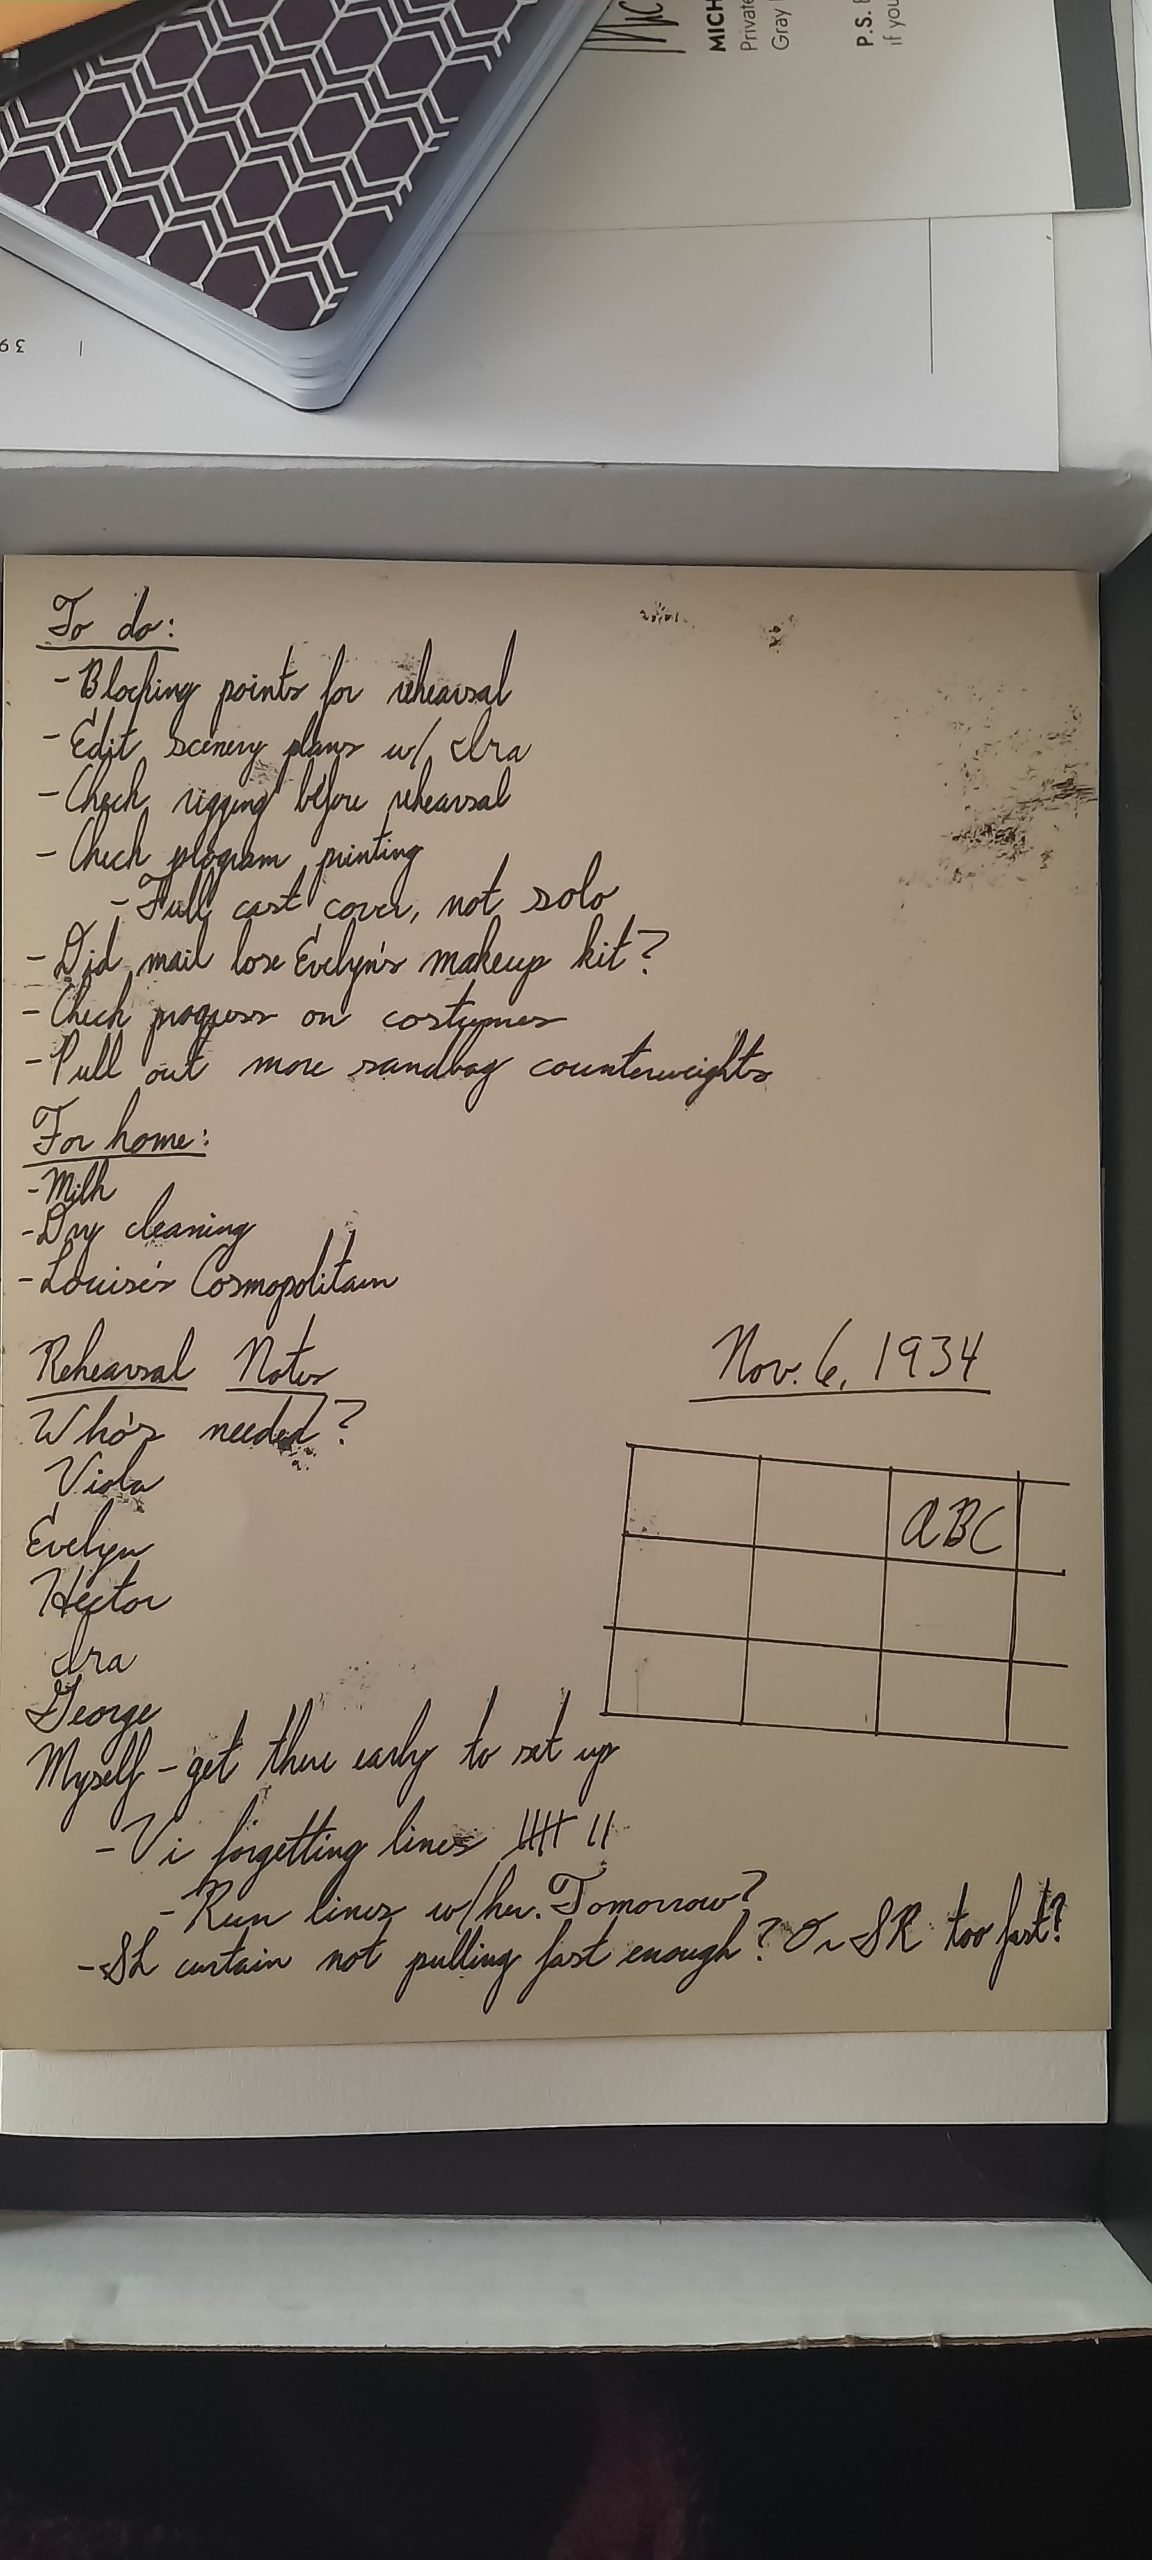 MICH
Private
Gray
P.S.
if you
To do:
- Blocking points for rehearsal
- Edit scenery plans w/ Ira
- Check rigging before rehearsal
- Check program printing
- Full cast cover, not solo
- Did mail lose Evelyn's makeup kit?
- Check progress on costumes
- Pull out more sandbag counterweights
For home:
- Milk
- Dry cleaning
- Louise's Cosmopolitain
Rehearsal Notes
Nov. 6, 1934
Who's needed?
Viola
Evelyn
Hector
Ira
George
ABC
Myself - get there early to set up
- Vi forgetting lines |||| ||
- Run lines w/her. Tomorrow?
- SL curtain not pulling fast enough? Or SR too fast?